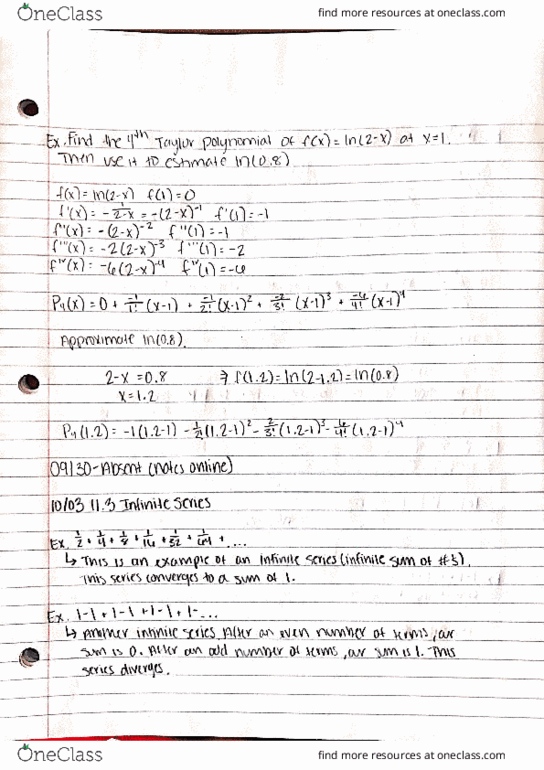 OneClass
find more resources at oneclass.com
Ex. Find the 4th Taylor Polynomial of f(x)=ln(2-x) at x=1.
Then use it to estimate ln(0.8)
f(x)=ln(2-x) f(1)=0
f'(x)= -1/2-x = -(2-x)^-1 f'(1)=-1
f''(x)= -(2-x)^-2 f''(1)=-1
f'''(x)= -2(2-x)^-3 f'''(1)=-2
f^iv(x)= -6(2-x)^-4 f^iv(1)=-6
P4(x)=0+ -1/1! (x-1) + -1/2! (x-1)^2 + -2/3! (x-1)^3 + -6/4! (x-1)^4
Approximate ln(0.8).
2-x=0.8 ⇒ f(1.2)=ln(2-1.2)=ln(0.8)
x=1.2
P4(1.2)= -1(1.2-1) - 1/2(1.2-1)^2 - 2/3!(1.2-1)^3 - 6/4!(1.2-1)^4
09/30-Absent (notes online)
10/03 11.3 Infinite Series
Ex. 1/2 + 1/4 + 1/8 + 1/16 + 1/32 + 1/64 + ...
↳ This is an example of an infinite series (infinite sum of #s).
This series converges to a sum of 1.
Ex. 1-1+1-1+1-1+1-...
↳ Another infinite series. After an even number of terms, our
sum is 0. After an odd number of terms, our sum is 1. This
series diverges.
OneClass
find more resources at oneclass.com